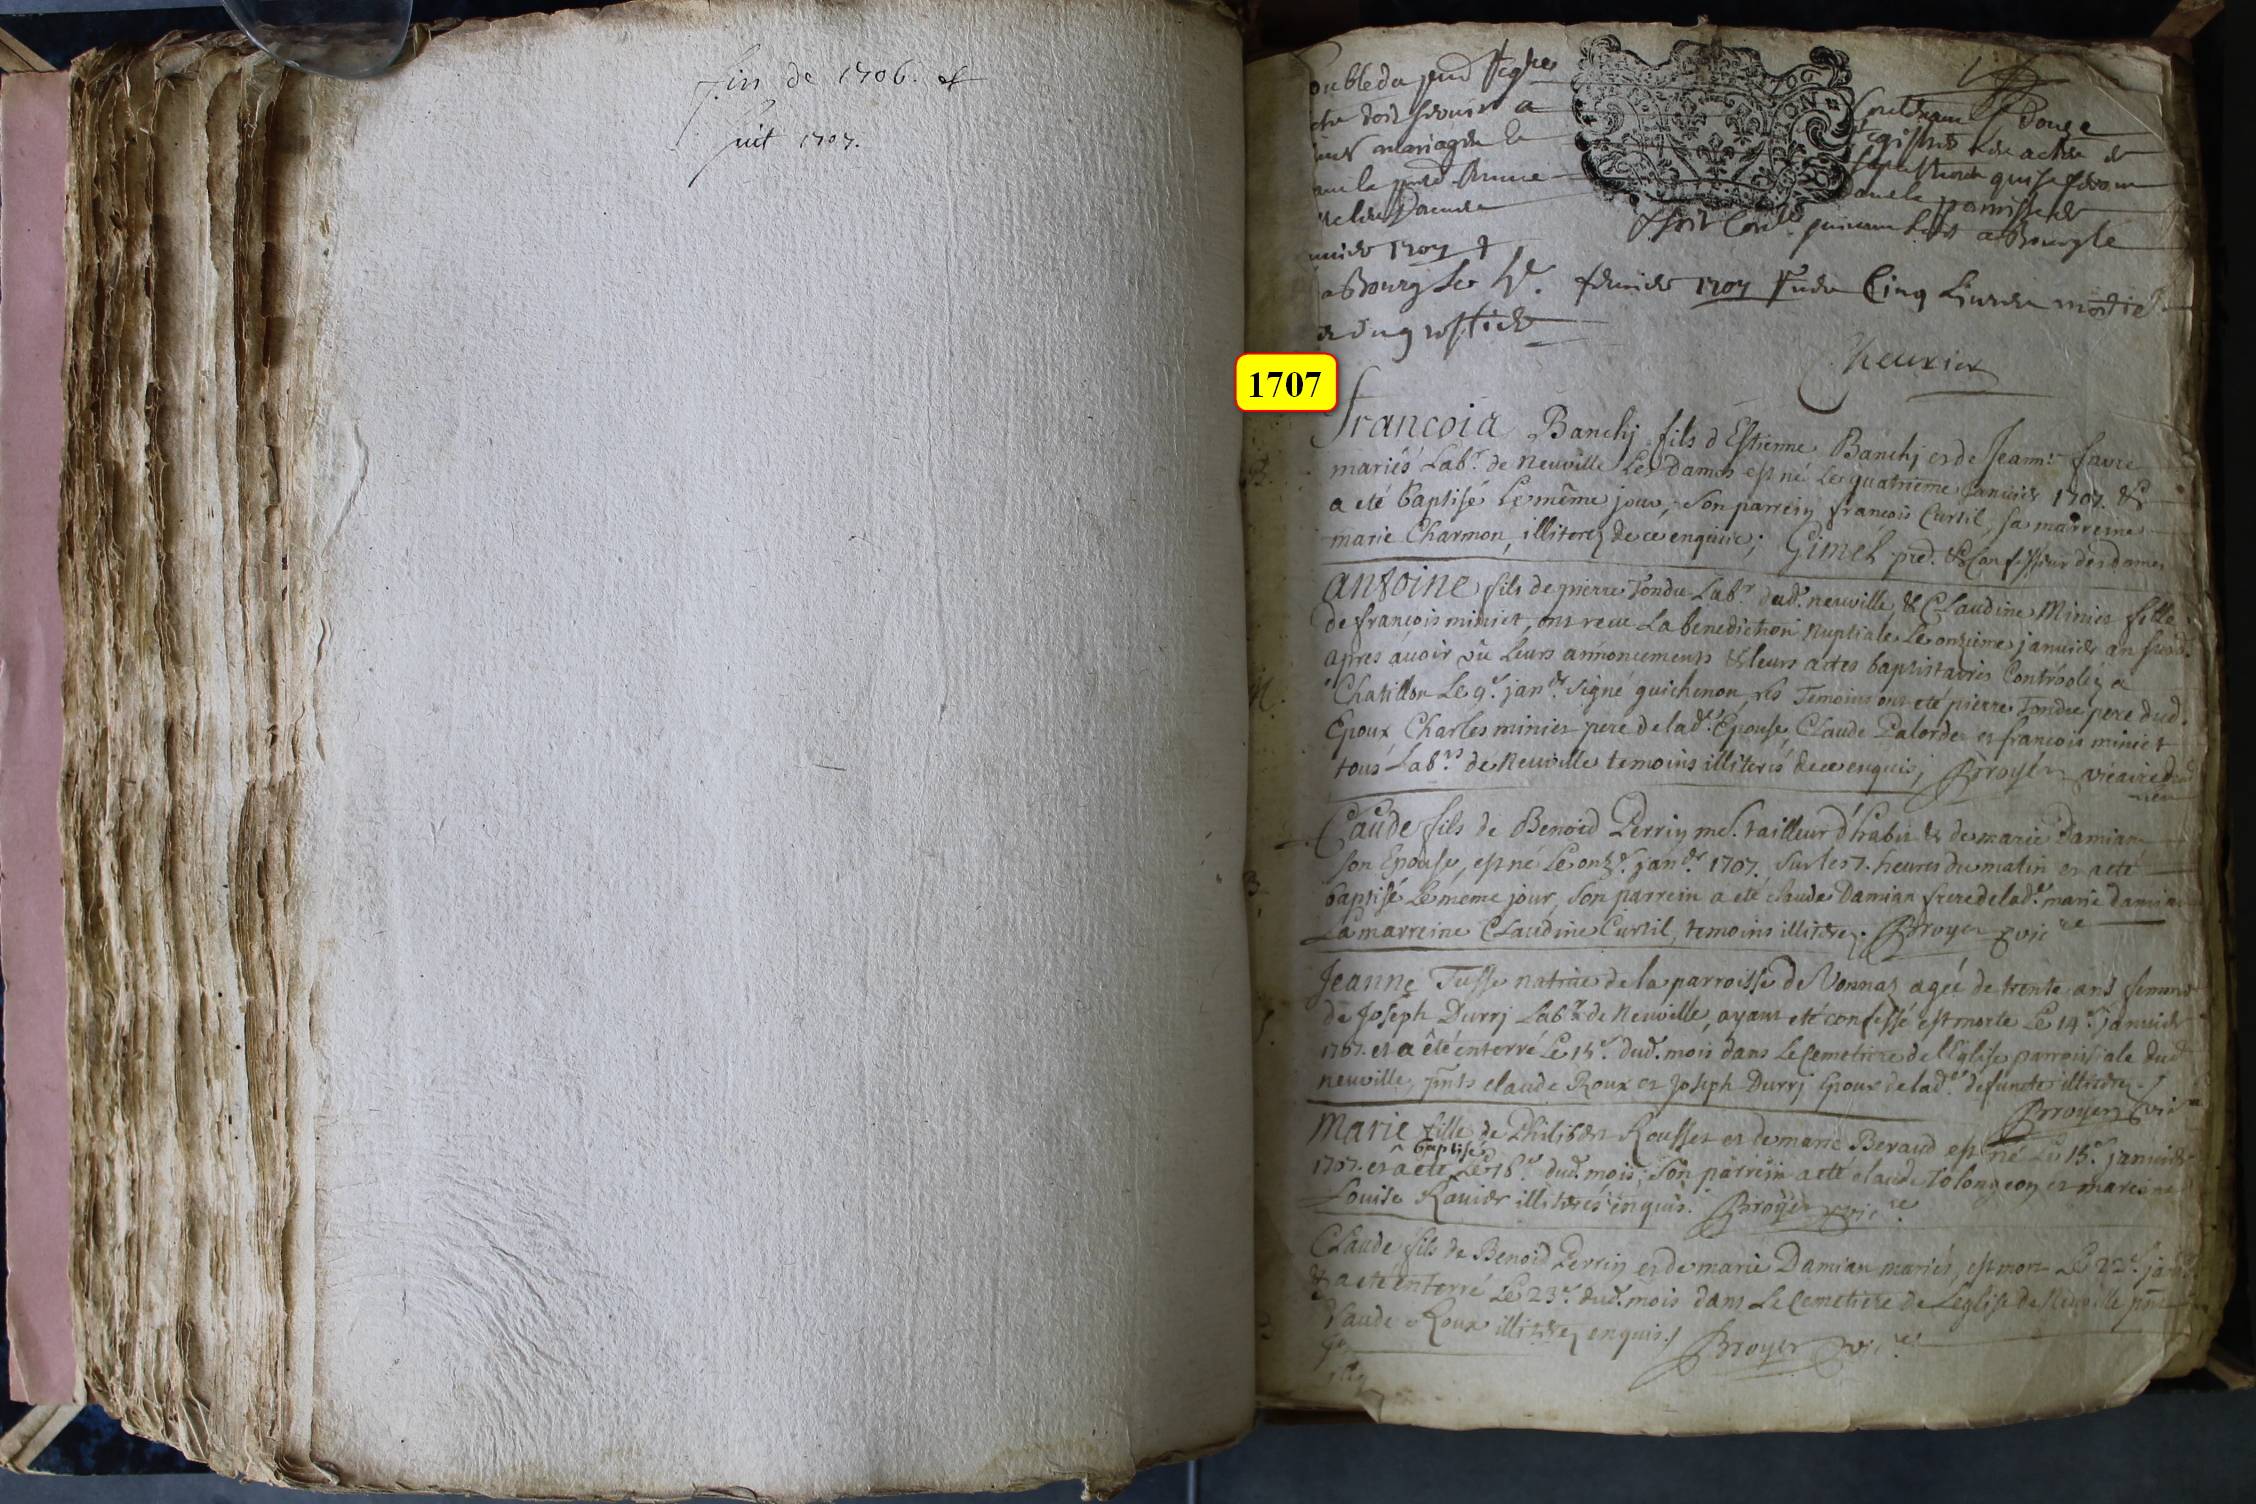 fin de 1706. et
suit 1707.
double du
Contenant Douze
doit servir a
Registre des actes de
mariages
Sepultures qui se feront
dans la paroisse de
a Bourg le
1707
a Bourg le febvrier 1707 Cinq Livres
Cheurier
1707
francois Banchj fils d'Estienne Banchj et de Jeanne favre
mariés Labr. de Neuville Les Dames est né Le quatrieme Janvier 1707. &
a eté baptisé Le même jour, Son parrein françois Curtil, sa marreine
marie Charmon, illiterez de ce enquis; Gimel pred. & Confesseur des dames
antoine fils de pierre Tondu Labr. dud. neuville, & CLaudine Minier fille
de françois minier, ont receu La benediction Nuptiale Le onzieme janvier an susd.
apres avoir vû Leurs annoncements & leurs actes baptistaires Controolez a
Chatillon Le 9e. janer. Signé guichenon, les Temoins ont eté pierre Tondu pere dud.
Epoux Charles minier pere de lad. Epouse, Claude Palordet et françois minier
tous Labrs. de Neuville temoins illiterés de ce enquis; Broyer vicaire
Claude fils de Benoid Perrin me. tailleur d'habit & de marie Damian
son Epouse, est né Le onze. janer. 1707. sur les 7. heures du matin et a eté
baptisé Le meme jour, Son parrein a eté claude Damian frere de lad. marie damian
La marreine CLaudine Curtil, temoins illiterez. Broyer vicre
Jeanne Tusse natiue de la parroisse de Vonnas ageé de trente ans femme
de Joseph Durrj Labr. de Neuville, ayant eté confessé est morte Le 14e. janvier
1707. et a êté enterré Le 15e. dud. mois dans Le Cemetiere de l'Eglise parroissiale dud
neuville, pnts claude Roux et Joseph Durrj Epoux de lad. defuncte illiterez
Broyer vicre
Marie fille de Philibert Rousset et de marie Beraud est né Le 15e. janvier
baptisé
1707. et a eté Le 16e. dud. mois, Son parrein a eté claude Tolongeon et mareine
Louise Ravier illiterés enquis. Broyer vicre
CLaude fils de Benoid Perrin et de marie Damian mariés, est mort Le 22e. janer
& a eté enterré Le 23e. dud. mois dans Le Cemetiere de Leglise de Neuville pnt
Claude Roux illiterez enquis. Broyer vicre